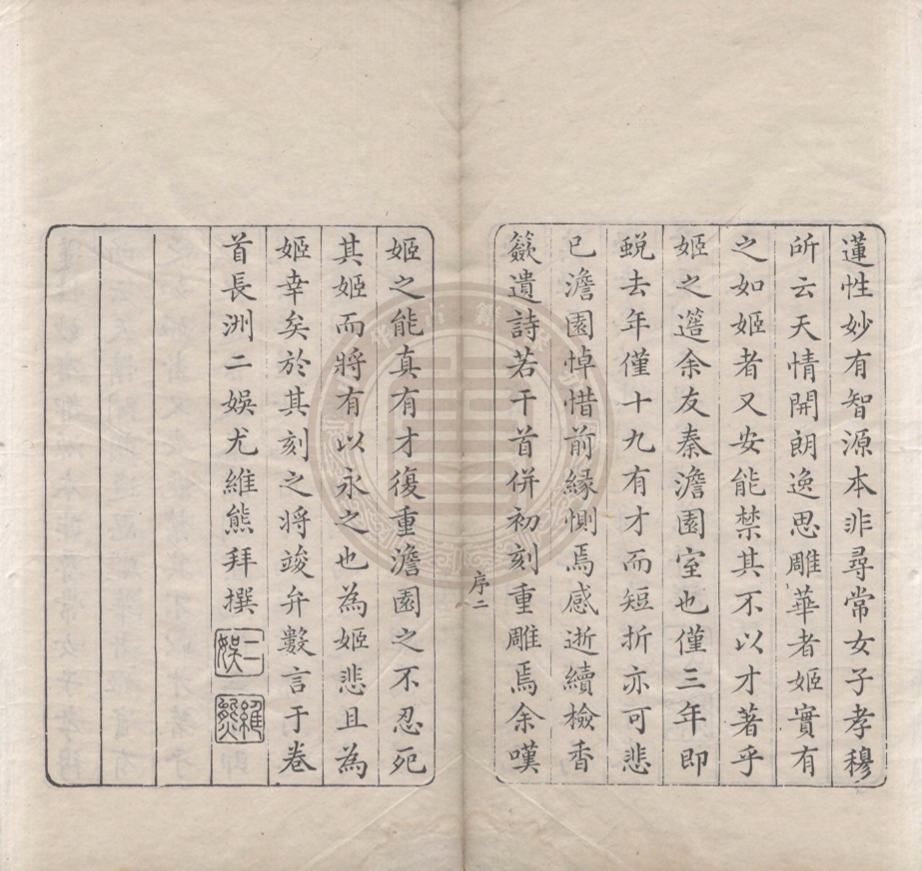 蓮性妙有智源本非尋常女子孝穆
所云天情開朗逸思雕華者姬實有
之如姬者又安能禁其不以才著乎
姬之簉余友秦澹園室也僅三年即
蛻去年僅十九有才而短折亦可悲
已澹園悼惜前緣惻焉感逝續檢香
籨遺詩若干首併初刻重雕焉余嘆
序二
姬之能真有才復重澹園之不忍死
其姬而將有以永之也為姬悲且為
姬幸矣於其刻之將竣弁數言于卷
首長洲二娛尤維熊拜撰
二娛
維熊